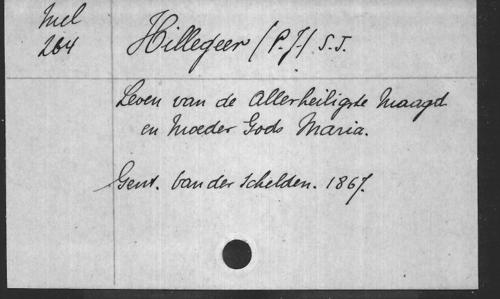 Mel
264
Hillegeer (P.J.) S.J.
Leven van de Allerheiligste Maagd
en Moeder Gods Maria.
Gent. Van der Schelden. 1867.